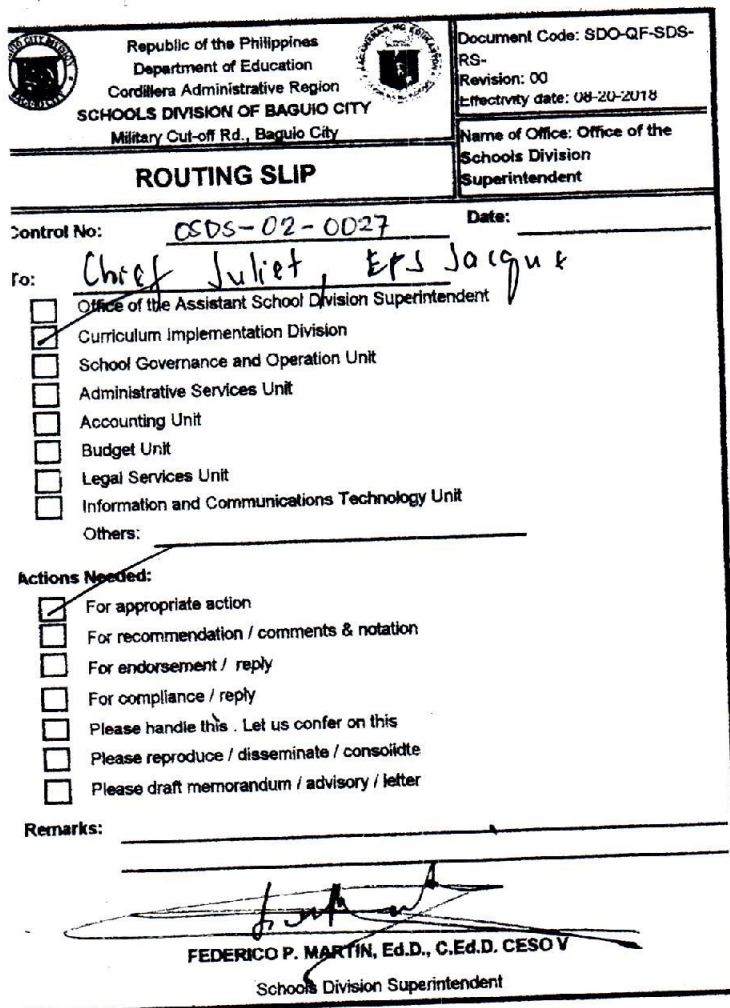 Republic of the Philippines
Department of Education
Cordillera Administrative Region
SCHOOLS DIVISION OF BAGUIO CITY
Military Cut-off Rd., Baguio City
ROUTING SLIP
Document Code: SDO-QF-SDS-
RS-
Revision: 00
Effectivity date: 08-20-2018
Name of Office: Office of the
Schools Division
Superintendent
Control No: OSDS-02-0027
Date:
To: Chief Juliet, EPS Jacque
Office of the Assistant School Division Superintendent
Curriculum Implementation Division
School Governance and Operation Unit
Administrative Services Unit
Accounting Unit
Budget Unit
Legal Services Unit
Information and Communications Technology Unit
Others:
Actions Needed:
For appropriate action
For recommendation / comments & notation
For endorsement / reply
For compliance / reply
Please handle this . Let us confer on this
Please reproduce / disseminate / consolidte
Please draft memorandum / advisory / letter
Remarks:
FEDERICO P. MARTIN, Ed.D., C.Ed.D. CESO V
Schools Division Superintendent